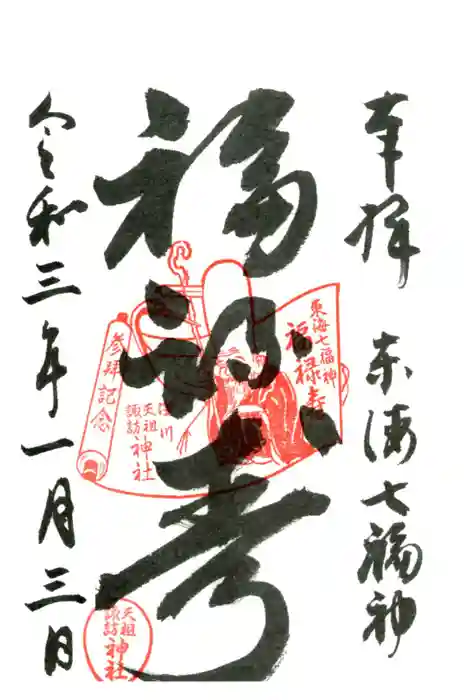 奉拝 東海七福神
福禄寿
令和三年一月三日
東海七福神
福禄寿
参拝記念
品川
天祖
諏訪
神社
天祖
諏訪
神社